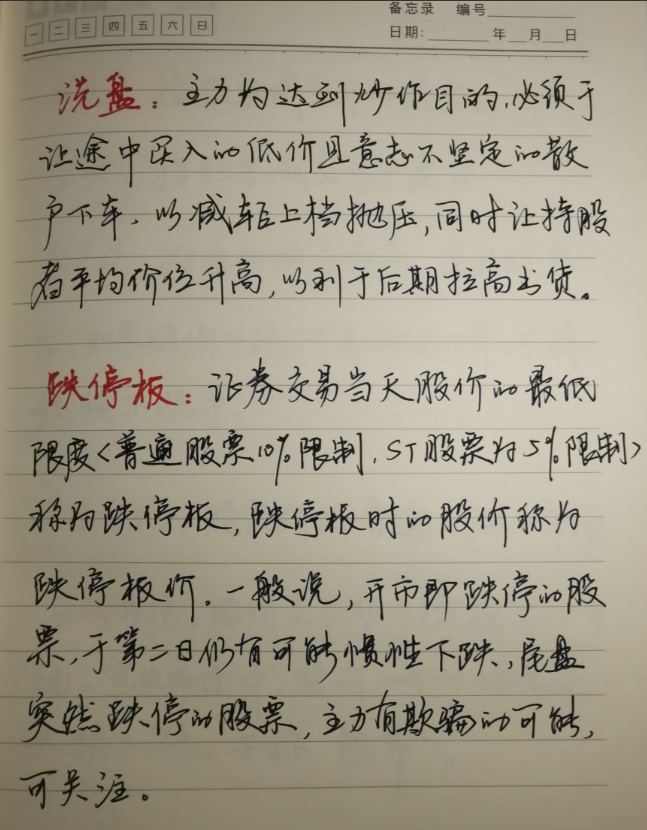 备忘录 编号
一 二 三 四 五 六 日
日期: 年 月 日
洗盘：主力为达到炒作目的，必须于
让途中买入的低价且意志不坚定的散
户下车，以减轻上档抛压，同时让持股
者平均价位升高，以利于后期拉高出货。
跌停板：证券交易当天股价的最低
限度<普通股票10%限制，ST股票为5%限制>
称为跌停板，跌停板时的股价称为
跌停板价。一般说，开市即跌停的股
票，于第二日仍有可能惯性下跌，尾盘
突然跌停的股票，主力有欺骗的可能，
可关注。